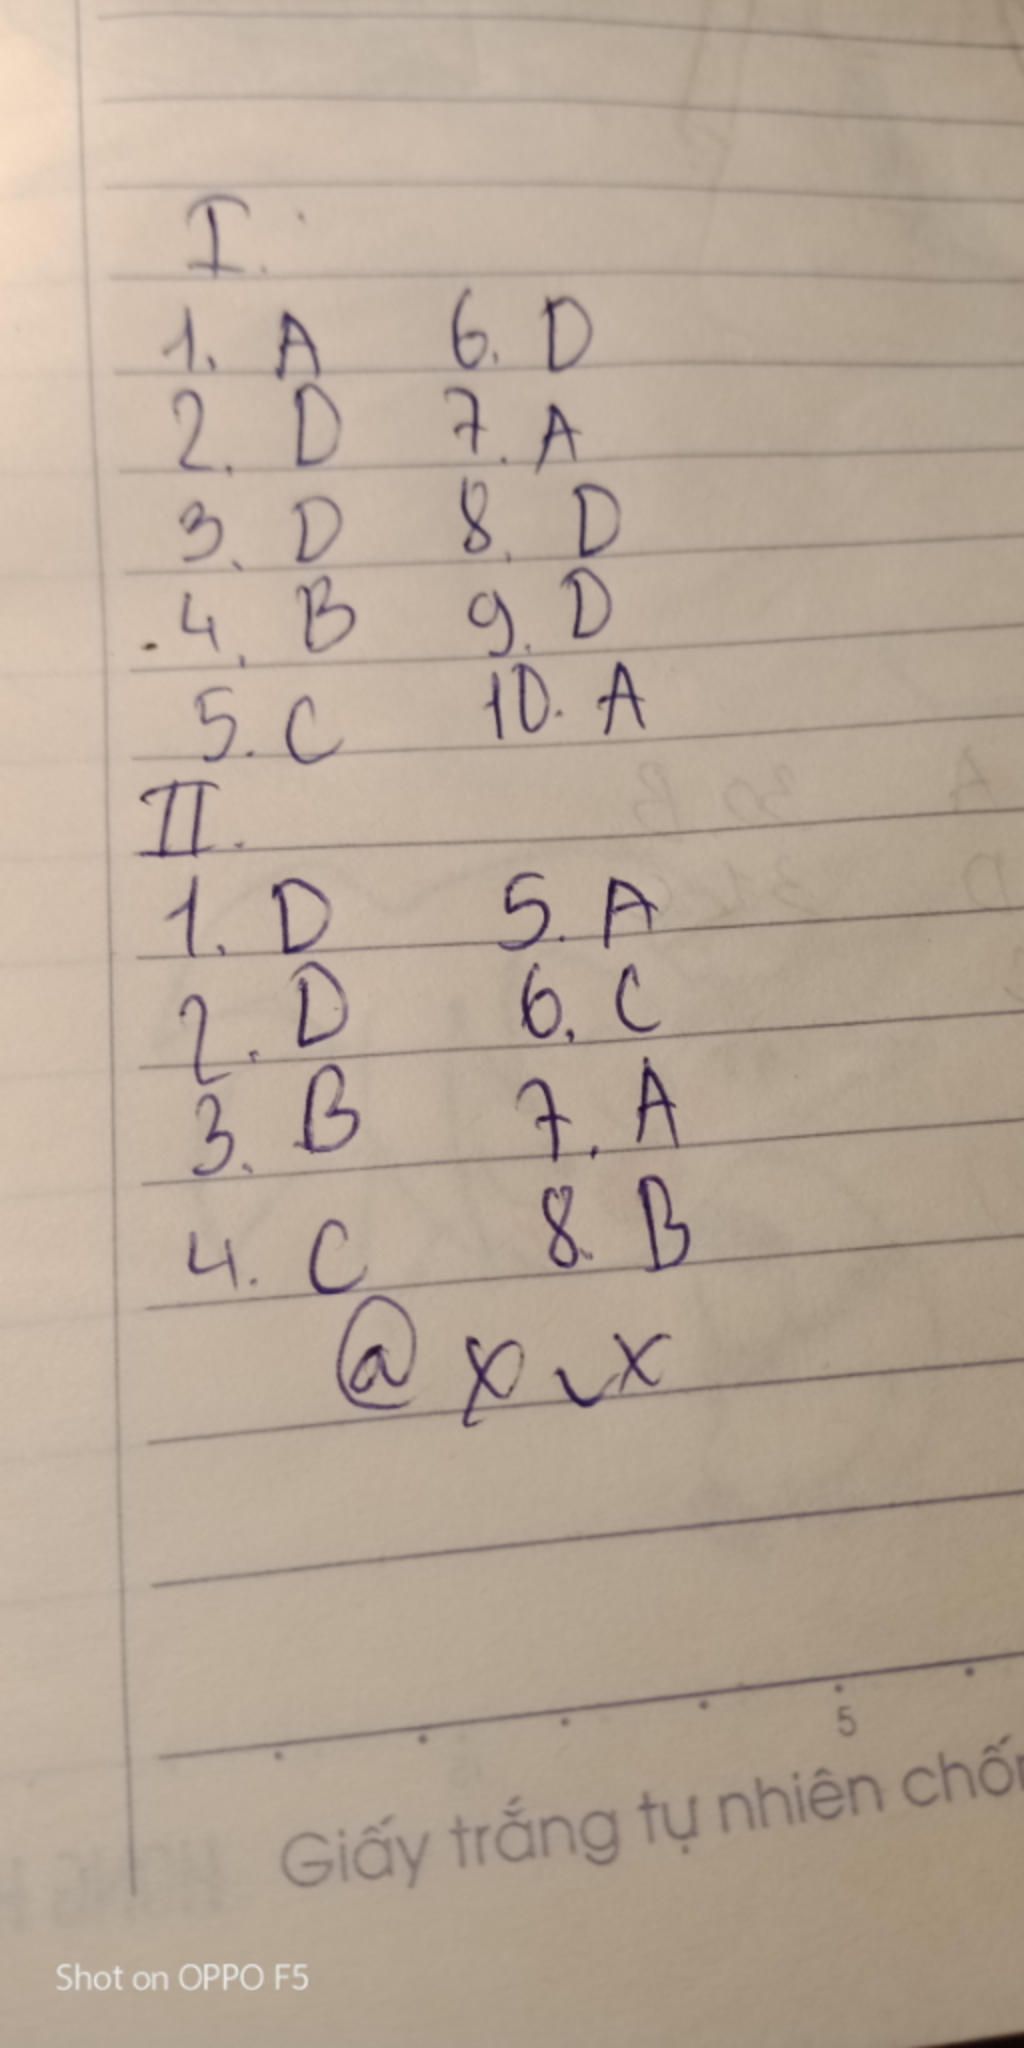 I.
1. A 6. D
2. D 7. A
3. D 8. D
4. B 9. D
5. C 10. A
II.
1. D 5. A
2. D 6. C
3. B 7. A
4. C 8. B
@ x x
5
Giấy trắng tự nhiên
Shot on OPPO F5